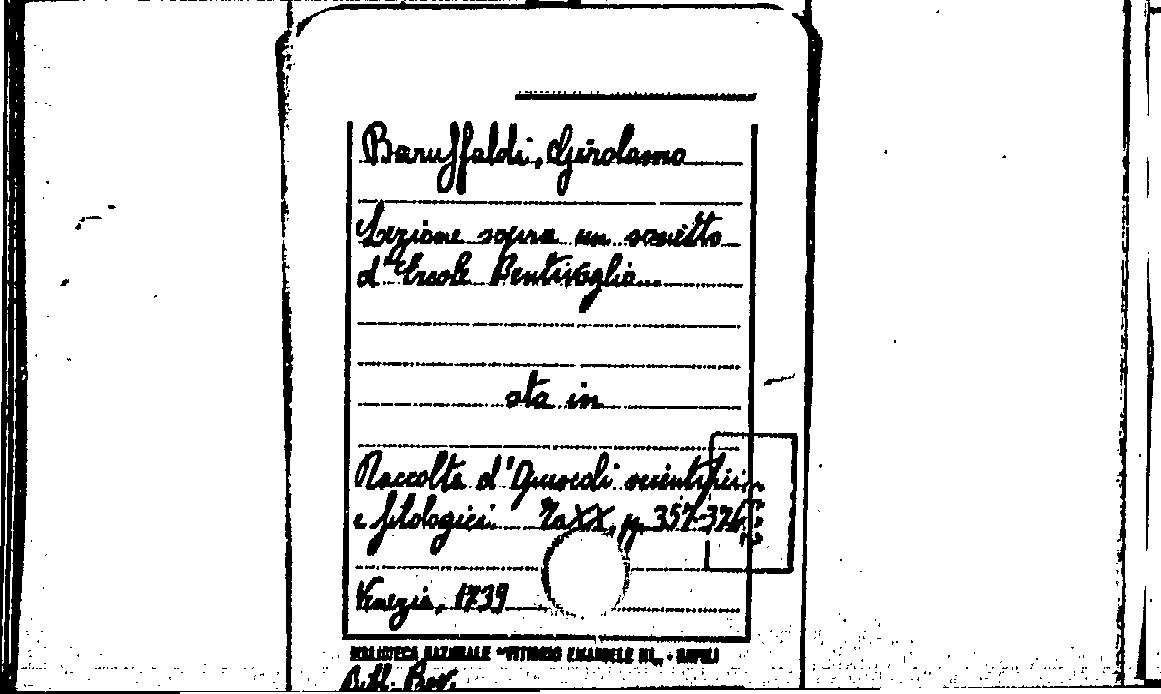 Baruffaldi, Girolamo
Lezione sopra un sonetto
d'Ercole Bentivoglio...
sta in
Raccolta d'Opuscoli scientifici
e filologici. To XX, p. 357-376
Venezia, 1739
BIBLIOTECA NAZIONALE "VITTORIO EMANUELE III" - NAPOLI